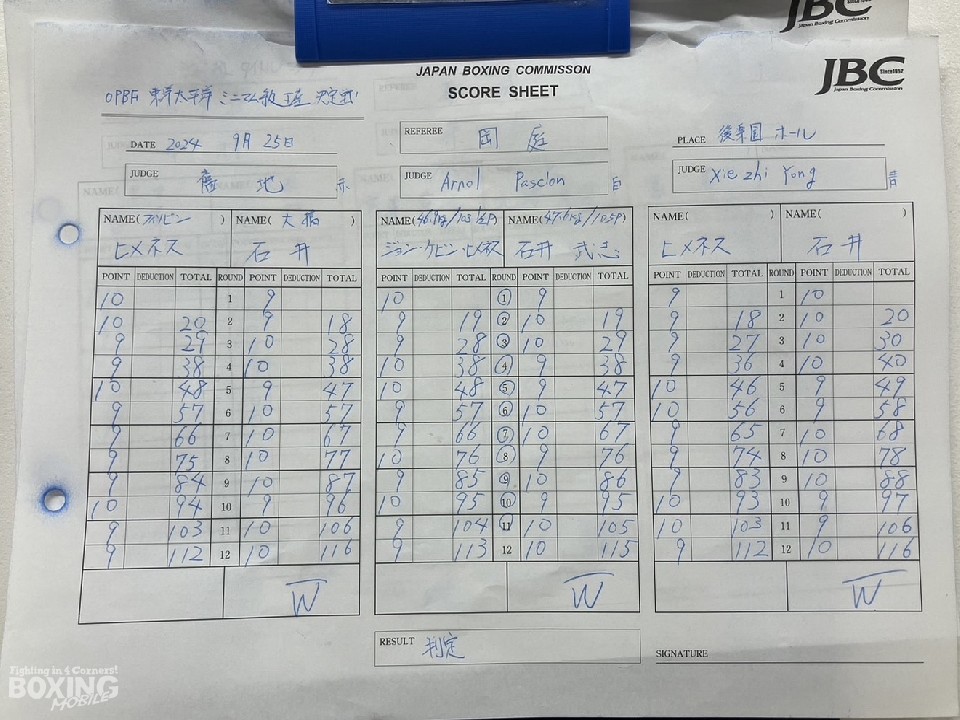 JBC
Japan Boxing Commission
JAPAN BOXING COMMISSON
SCORE SHEET
JBC
Since1952
Japan Boxing Commission
OPBF 東洋太平洋 ミニマム級 王座 決定戦
DATE 2024 9月25日
REFEREE 国庭
PLACE 後楽園ホール
JUDGE 地 赤
JUDGE Arnol 白
JUDGE Xie zhi Yong 青
NAME(フィリピン) NAME(大橋)
ヒメネス 石井
POINT DEDUCTION TOTAL ROUND POINT DEDUCTION TOTAL
10 1 9
10 20 2 9 18
9 29 3 10 28
9 38 4 10 38
10 48 5 9 47
9 57 6 10 57
9 66 7 10 67
9 75 8 10 77
9 84 9 10 87
10 94 10 9 96
9 103 11 10 106
9 112 12 10 116
W
NAME( NAME(
ジョン・ケビン・ヒメネス 石井 武志
POINT DEDUCTION TOTAL ROUND POINT DEDUCTION TOTAL
10 1 9
9 19 2 10 19
9 28 3 10 29
10 38 4 9 38
10 48 5 9 47
9 57 6 10 57
9 66 7 10 67
10 76 8 9 76
9 85 9 10 86
10 95 10 9 95
9 104 11 10 105
9 113 12 10 115
W
NAME( ) NAME( )
ヒメネス 石井
POINT DEDUCTION TOTAL ROUND POINT DEDUCTION TOTAL
9 1 10
9 18 2 10 20
9 27 3 10 30
9 36 4 10 40
10 46 5 9 49
10 56 6 9 58
9 65 7 10 68
9 74 8 10 78
9 83 9 10 88
10 93 10 9 97
10 103 11 9 106
9 112 12 10 116
W
RESULT 判定
SIGNATURE
Fighting in 4 Corners!
BOXING
MOBILE